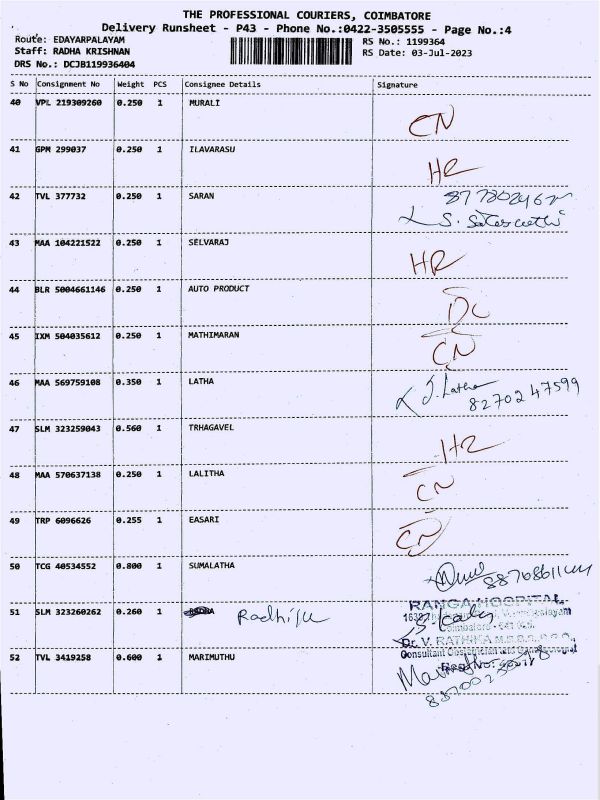 THE PROFESSIONAL COURIERS, COIMBATORE
Delivery Runsheet - P43 - Phone No.:0422-3505555 - Page No.:4
Route: EDAYARPALAYAM
Staff: RADHA KRISHNAN
DRS No.: DCJB119936404
RS No.: 1199364
RS Date: 03-Jul-2023
S No Consignment No Weight PCS Consignee Details Signature
40 VPL 219309260 0.250 1 MURALI CN
41 GPM 299037 0.250 1 ILAVARASU HR
42 TVL 377732 0.250 1 SARAN
43 MAA 104221522 0.250 1 SELVARAJ HR
44 BLR 5004661146 0.250 1 AUTO PRODUCT DC
45 IXM 504035612 0.250 1 MATHIMARAN CN
46 MAA 569759108 0.350 1 LATHA J. Latha
8270247599
47 SLM 323259043 0.560 1 TRHAGAVEL HR
48 MAA 570637138 0.250 1 LALITHA CN
49 TRP 6096626 0.255 1 EASARI CN
50 TCG 40534552 0.800 1 SUMALATHA
51 SLM 323260262 0.260 1 RANGA HOSPITAL
Dr. V. RATHIKA
Consultant
52 TVL 3419258 0.600 1 MARIMUTHU